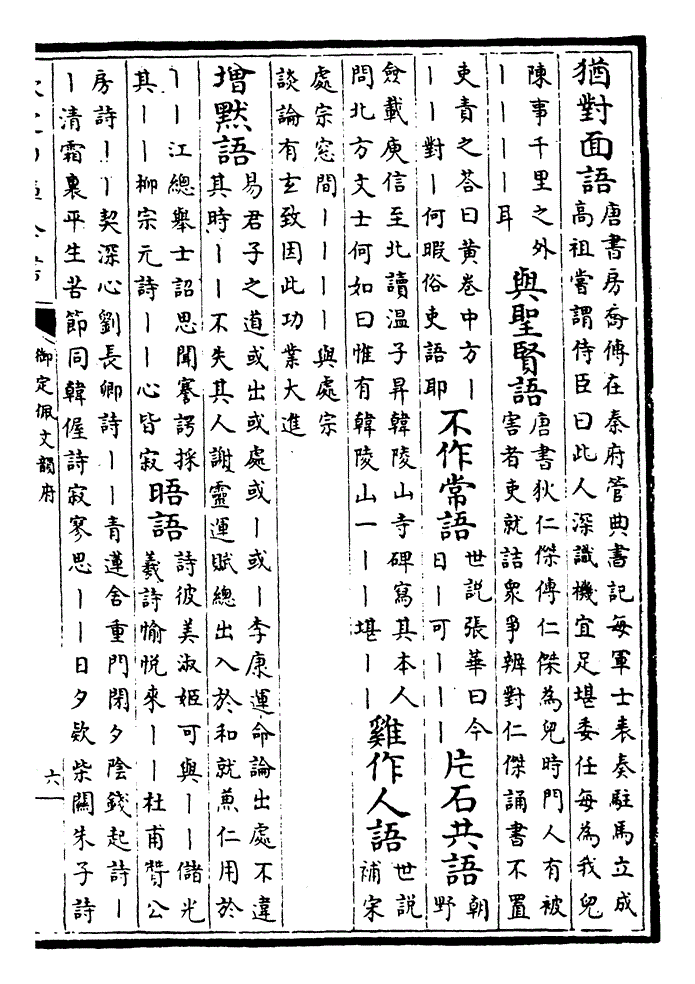 猶對面語
唐書房喬傳在秦府管典書記每軍士表奏駐馬立成
高祖嘗謂侍臣曰此人深識機宜足堪委任每為我兒
陳事千里之外
｜｜｜｜耳
與聖賢語
唐書狄仁傑傳仁傑為兒時門人有被
害者吏就詰衆爭辨對仁傑誦書不置
吏責之荅曰黃卷中方｜
｜｜對｜何暇俗吏語耶
不作常語
世說張華曰今
日｜可｜｜｜
片石共語
朝
野
僉載庾信至北讀溫子昇韓陵山寺碑寫其本人
問北方文士何如曰惟有韓陵山一｜｜堪｜｜
雞作人語
世說
補宋
處宗窓間｜｜｜｜與處宗
談論有玄致因此功業大進
增默語
易君子之道或出或處或｜或｜李康運命論出處不違
其時｜｜不失其人謝靈運賦總出入於和就兼仁用於
｜｜江總舉士詔思聞謇諤採
其｜｜柳宗元詩｜｜心皆寂
晤語
詩彼美淑姬可與｜｜儲光
羲詩愉悅來｜｜杜甫贊公
房詩｜｜契深心劉長卿詩｜｜青蓮舍重門閉夕陰錢起詩｜
｜清霜裏平生苦節同韓偓詩寂寥思｜｜日夕欵柴關朱子詩
御定佩文韻府
六